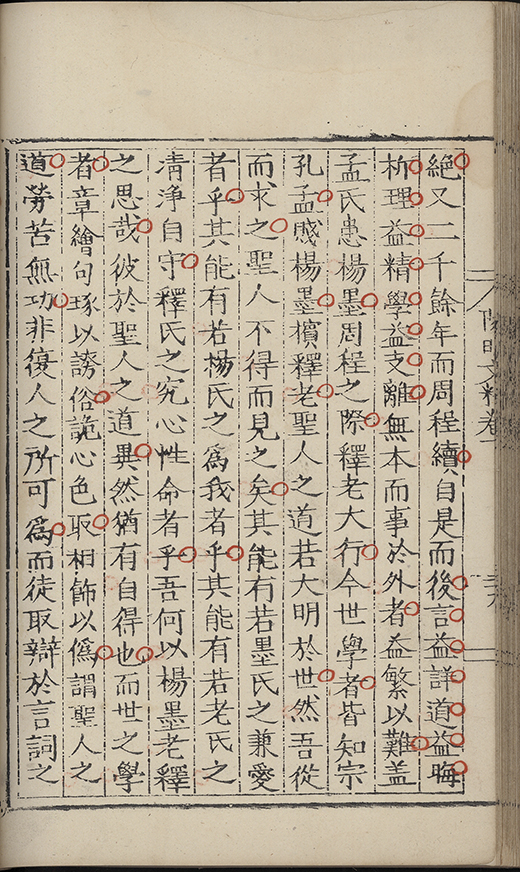 絕又二千餘年而周程續自是而後言益詳道益晦
析理益精學益支離無本而事於外者益繁以難盖
孟氏患楊墨周程之際釋老大行今世學者皆知宗
孔孟賤楊墨擯釋老聖人之道若大明於世然吾從
而求之聖人不得而見之矣其能有若墨氏之兼愛
者乎其能有若楊氏之爲我者乎其能有若老氏之
清淨自守釋氏之究心性命者乎吾何以楊墨老釋
之思哉彼於聖人之道異然猶有自得也而世之學
者章繪句琢以誇俗詭心色取相飾以僞謂聖人之
道勞苦無功非復人之所可爲而徒取辯於言詞之
陽明文粹卷一